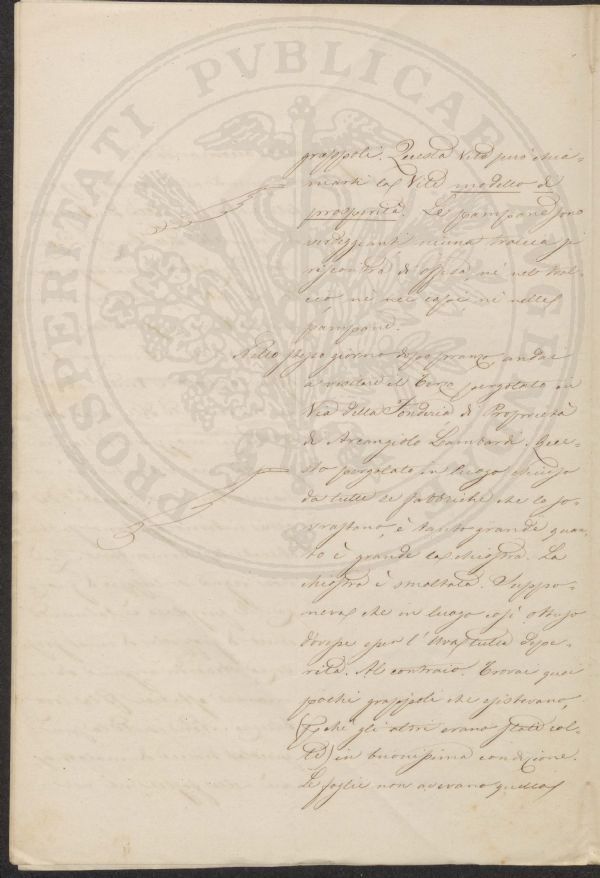 PROSPERITATI PVBLICAE AVGENDAE
grappoli. Questa Vite può chia-
marsi la Vite modello di
prosperità. Le pampane sono
verdeggianti niuna traccia si
riscontra di offesa nè nel tral-
cio nè nei capi nè nelle
pampane.
Nello stesso giorno dopo pranzo andai
a visitare il terzo pergolato in
Via della Fonderia di Proprietà
di Arcangiolo Lombardi. Que-
sto pergolato in luogo chiuso
da tutte le fabbriche che lo so-
vrastano, è tanto grande quan-
to è grande la chiostra. La
chiostra è smaltata. Suppo-
neva che in luogo così ottuso
dovesse esser l'Uva tutta depe-
rita. Al contrario. Trovai quei
pochi grappoli che esistevano,
(giacchè gli altri erano stati col-
ti) in buonissima condizione.
Le foglie non avevano quella